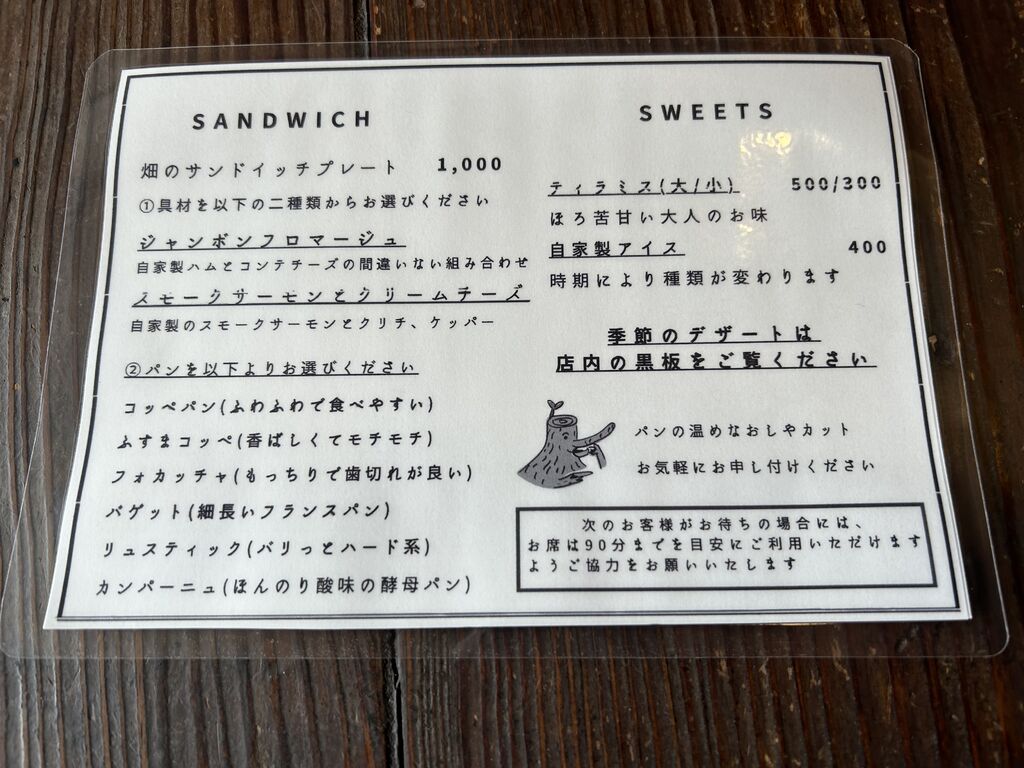 SANDWICH
畑のサンドイッチプレート 1,000
①具材を以下の二種類からお選びください
ジャンボンフロマージュ
自家製ハムとコンテチーズの間違いない組み合わせ
スモークサーモンとクリームチーズ
自家製のスモークサーモンとクリチ、ケッパー
②パンを以下よりお選びください
コッペパン(ふわふわで食べやすい)
ふすまコッペ(香ばしくてモチモチ)
フォカッチャ(もっちりで歯切れが良い)
バゲット(細長いフランスパン)
リュスティック(バリっとハード系)
カンパーニュ(ほんのり酸味の酵母パン)
SWEETS
ティラミス(大/小) 500/300
ほろ苦甘い大人のお味
自家製アイス 400
時期により種類が変わります
季節のデザートは
店内の黒板をご覧ください
パンの温めなおしやカット
お気軽にお申し付けください
次のお客様がお待ちの場合には、
お席は90分までを目安にご利用いただけます
ようご協力をお願いいたします